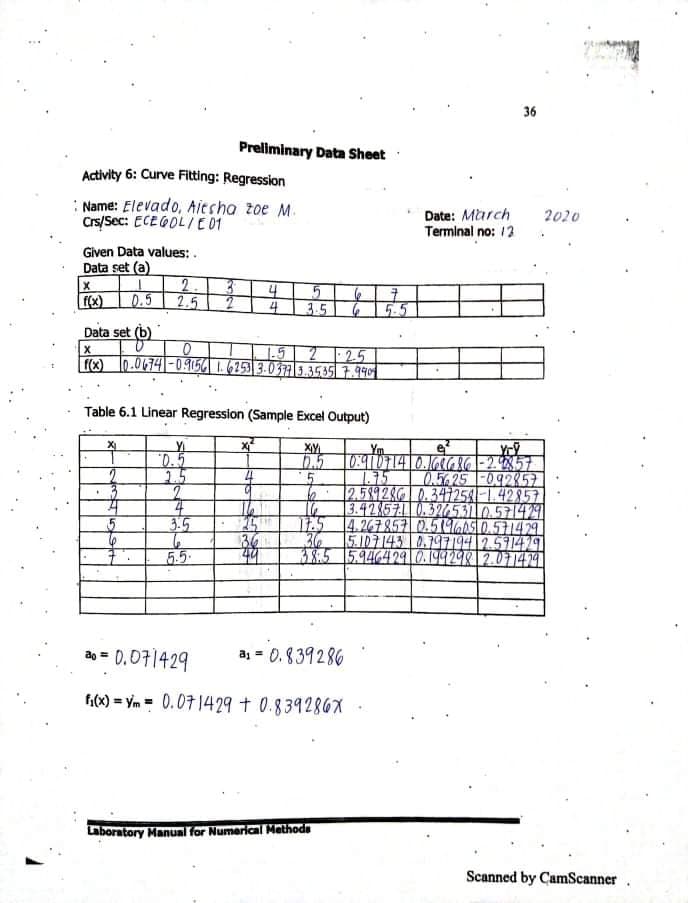 36
Preliminary Data Sheet
Activity 6: Curve Fitting: Regression
Name: Elevado, Aiesha Zoe M.
Date: March 2020
Crs/Sec: ECEGOL/E01
Terminal no: 13
Given Data values:
Data set (a)
x 1 2 3 4 5 6 7
f(x) 0.5 2.5 2 4 3.5 6 5.5
Data set (b)
x 0 0 1 1.5 2 2.5
f(x) 0.0674 -0.9156 1.6253 3.0377 3.3535 7.9409
Table 6.1 Linear Regression (Sample Excel Output)
xi yi xi² xiyi ym e² yi-ŷ
1 0.5 1 0.5 0.910714 0.168686 -2.92857
2 2.5 4 5 1.75 0.5625 -0.92857
3 2 9 6 2.589286 0.347258 -1.42857
4 4 16 16 3.428571 0.326531 0.571429
5 3.5 25 17.5 4.267857 0.589605 0.571429
6 6 36 36 5.107143 0.797194 2.571429
7 5.5 49 38.5 5.946429 0.199298 2.071429
a0 = 0.071429 a1 = 0.839286
f1(x) = ym = 0.071429 + 0.839286x
Laboratory Manual for Numerical Methods
Scanned by CamScanner